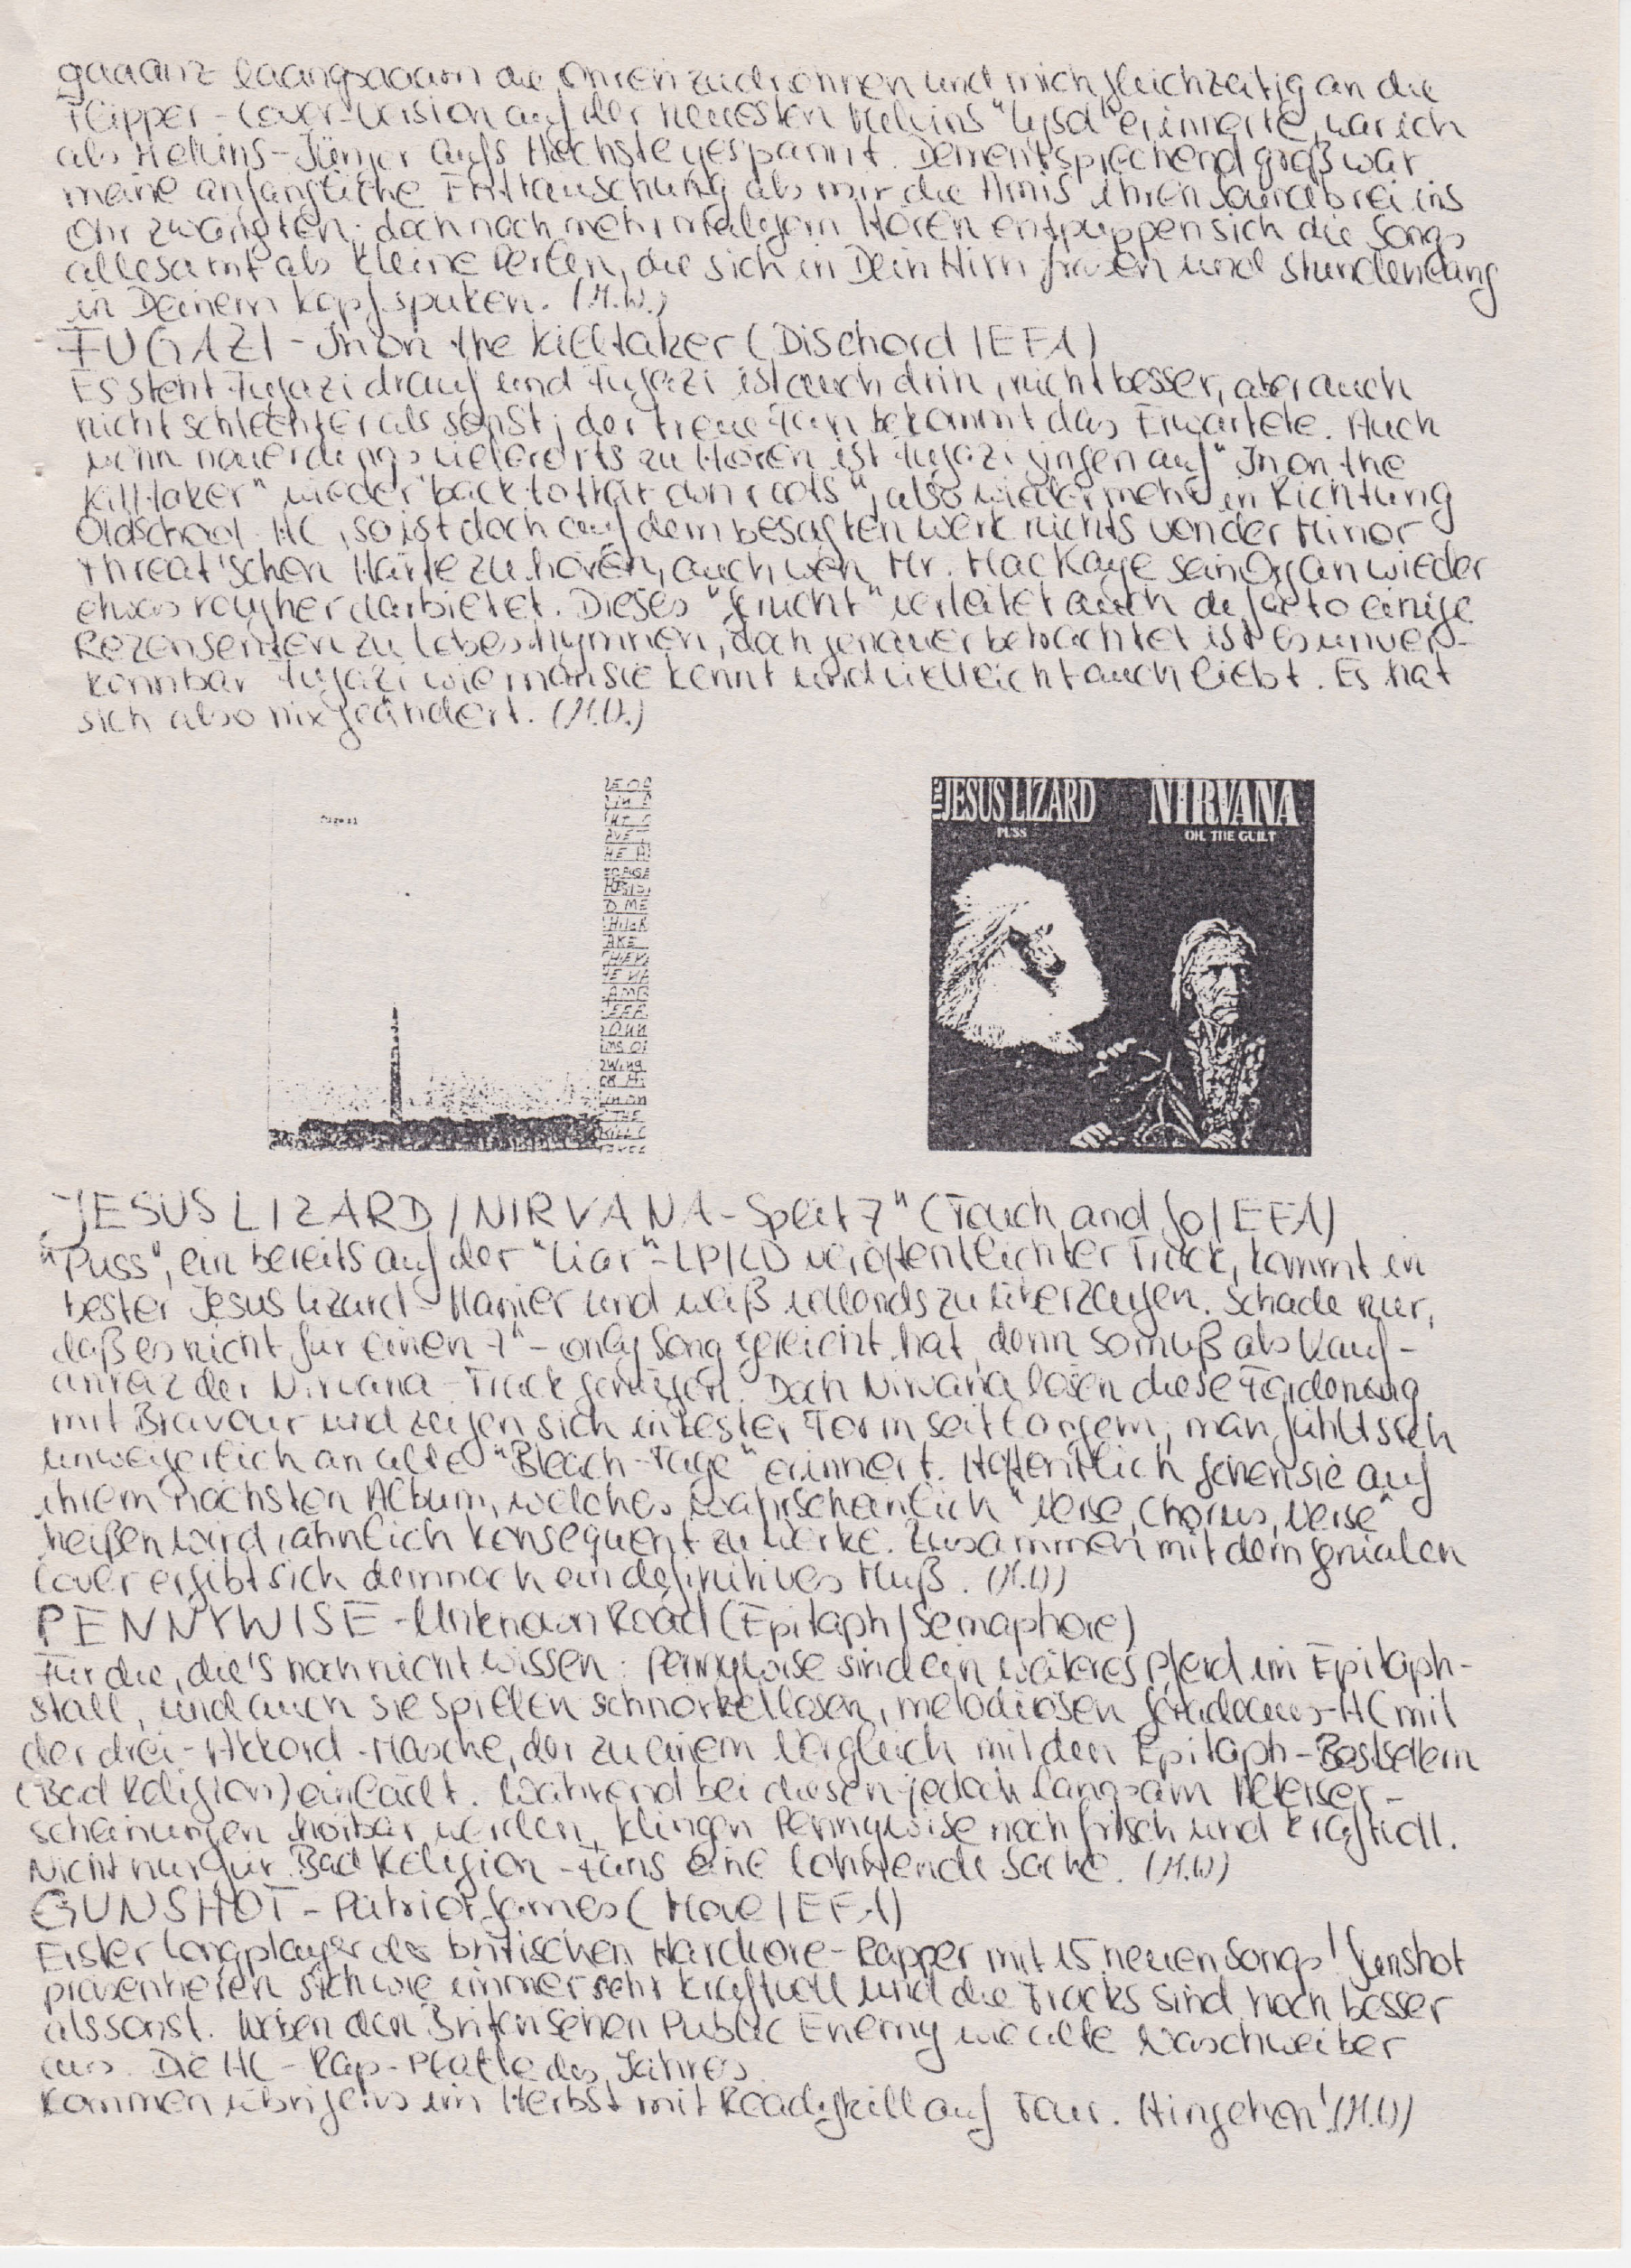 gaaanz laangsaaam die Ohren zudröhnen und mich gleichzeitig an die
Flipper-Cover-Version auf der neuesten Melvins "Lysol" erinnerte, war ich
als Melvins-Jünger aufs Höchste gespannt. Dementsprechend groß war
meine anfängliche Enttäuschung als mir die Amis ihren Soundbrei ins
Ohr zwängten; doch nach mehrmaligem Hören entpuppen sich die Songs
allesamt als kleine Perlen, die sich in Dein Hirn fräsen und stundenlang
in Deinem Kopf spuken. (M.W.)
FUGAZI - In on the Killtaker (Dischord/EFA)
Es steht Fugazi drauf und Fugazi ist auch drin, nicht besser, aber auch
nicht schlechter als sonst; der treue Fan bekommt das Erwartete. Auch
wenn neuerdings vielerorts zu Hören ist Fugazi gingen auf "In on the
Killtaker" wieder "back to their own roots", also wieder mehr in Richtung
Oldschool-HC, so ist doch auf dem besagten Werk nichts von der Minor
Threat'schen Härte zu hören, auch wen Mr. MacKaye sein Organ wieder
etwas rougher darbietet. Dieses "Gerücht" verleitet auch de facto einige
Rezensenten zu Lobeshymnen, doch genauer betrachtet ist es unver-
kennbar Fugazi wie man sie kennt und vielleicht auch liebt. Es hat
sich also nix geändert. (M.W.)
fugazi
THE JESUS LIZARD NIRVANA
PUSS OH, THE GUILT
AVE
D ME
AKE
THE
JESUS LIZARD/NIRVANA - Split 7" (Touch and Go/EFA)
"Puss", ein bereits auf der "Liar"-LP/CD veröffentlichter Track, kommt in
bester Jesus Lizard-Manier und weiß vollends zu überzeugen. Schade nur,
daß es nicht für einen 7"-only Song gereicht hat, denn so muß als Kauf-
anreiz der Nirvana-Track genügen. Doch Nirvana lösen diese Forderung
mit Bravour und zeigen sich in bester Form seit langem; man fühlt sich
unweigerlich an alte "Bleach-Tage" erinnert. Hoffentlich gehen sie auf
ihrem nächsten Album, welches wahrscheinlich "Verse, Chorus, Verse"
heißen wird, ähnlich konsequent zu Werke. Zusammen mit dem genialen
Cover ergibt sich demnach ein definitives Muß. (M.W)
PENNYWISE - Unknown Road (Epitaph/Semaphore)
Für die, die's noch nicht wissen: Pennywise sind ein weiteres Pferd im Epitaph-
stall, und auch sie spielen schnörkellosen, melodiösen geradeaus-HC mit
der drei-Akkord-Masche, der zu einem Vergleich mit den Epitaph-Bestsellern
(Bad Religion) einlädt. Während bei diesen jedoch langsam Alterser-
scheinungen hörbar werden, klingen Pennywise noch frisch und kraftvoll.
Nicht nur für Bad Religion-Fans eine lohnende Sache. (M.W)
GUNSHOT - Patriot Games (Move/EFA)
Erster Longplayer der britischen Hardcore-Rapper mit 15 neuen Songs! Gunshot
präsentieren sich wie immer sehr kraftvoll und die Tracks sind noch besser
als sonst. Neben den Briten sehen Public Enemy wie alte Waschweiber
aus. Die HC-Rap-Platte des Jahres.
Kommen übrigens im Herbst mit Readykill auf Tour. Hingehen! (M.W)